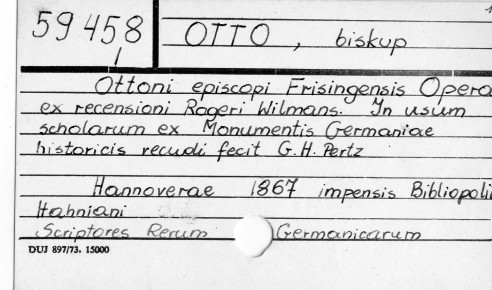 59458 OTTO, biskup
I
Ottoni episcopi Frisingensis Opera
ex recensioni Rogeri Wilmans. In usum
scholarum ex Monumentis Germaniae
historicis recudi fecit G.H. Pertz
Hannoverae 1867 impensis Bibliopoli
Hahniani
Scriptores Rerum Germanicarum
DUJ 897/73. 15000